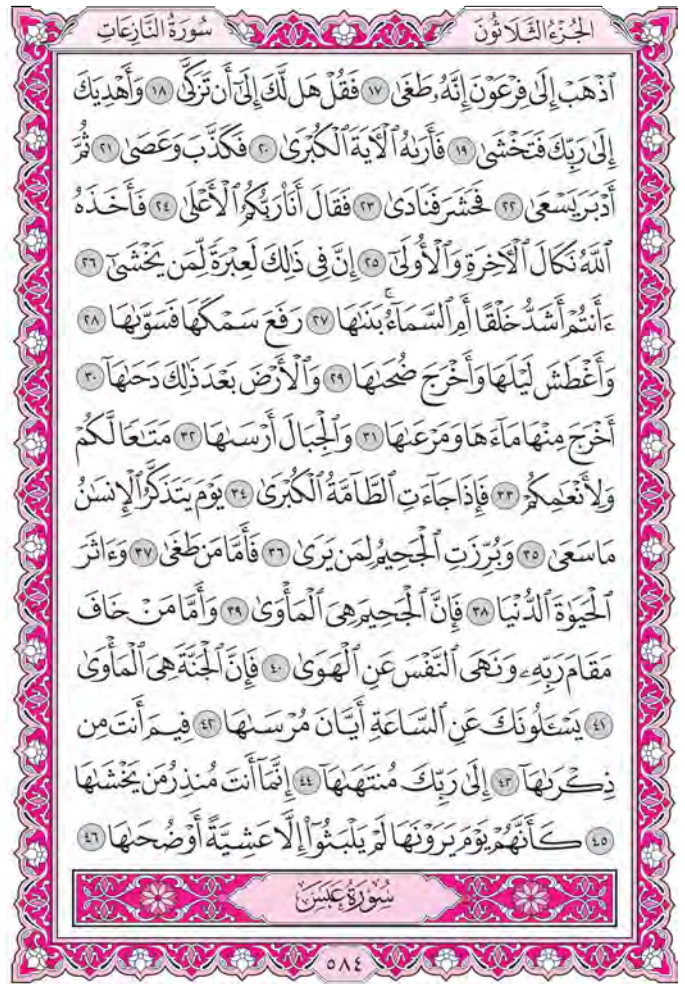 سُورَةُ النَّازِعَاتِ
الجُزْءُ الثَّلَاثُونَ
ٱذْهَبْ إِلَىٰ فِرْعَوْنَ إِنَّهُۥ طَغَىٰ ١٧ فَقُلْ هَل لَّكَ إِلَىٰٓ أَن تَزَكَّىٰ ١٨ وَأَهْدِيَكَ
إِلَىٰ رَبِّكَ فَتَخْشَىٰ ١٩ فَأَرَىٰهُ ٱلْأٓيَةَ ٱلْكُبْرَىٰ ٢٠ فَكَذَّبَ وَعَصَىٰ ٢١ ثُمَّ
أَدْبَرَ يَسْعَىٰ ٢٢ فَحَشَرَ فَنَادَىٰ ٢٣ فَقَالَ أَنَا۠ رَبُّكُمُ ٱلْأَعْلَىٰ ٢٤ فَأَخَذَهُ
ٱللَّهُ نَكَالَ ٱلْأٓخِرَةِ وَٱلْأُولَىٰٓ ٢٥ إِنَّ فِى ذَٰلِكَ لَعِبْرَةً لِّمَن يَخْشَىٰٓ ٢٦
ءَأَنتُمْ أَشَدُّ خَلْقًا أَمِ ٱلسَّمَآءُ ۚ بَنَىٰهَا ٢٧ رَفَعَ سَمْكَهَا فَسَوَّىٰهَا ٢٨
وَأَغْطَشَ لَيْلَهَا وَأَخْرَجَ ضُحَىٰهَا ٢٩ وَٱلْأَرْضَ بَعْدَ ذَٰلِكَ دَحَىٰهَآ ٣٠
أَخْرَجَ مِنْهَا مَآءَهَا وَمَرْعَىٰهَا ٣١ وَٱلْجِبَالَ أَرْسَىٰهَا ٣٢ مَتَٰعًا لَّكُمْ
وَلِأَنْعَٰمِكُمْ ٣٣ فَإِذَا جَآءَتِ ٱلطَّآمَّةُ ٱلْكُبْرَىٰ ٣٤ يَوْمَ يَتَذَكَّرُ ٱلْإِنسَٰنُ
مَا سَعَىٰ ٣٥ وَبُرِّزَتِ ٱلْجَحِيمُ لِمَن يَرَىٰ ٣٦ فَأَمَّا مَن طَغَىٰ ٣٧ وَءَاثَرَ
ٱلْحَيَوٰةَ ٱلدُّنْيَا ٣٨ فَإِنَّ ٱلْجَحِيمَ هِىَ ٱلْمَأْوَىٰ ٣٩ وَأَمَّا مَنْ خَافَ
مَقَامَ رَبِّهِۦ وَنَهَى ٱلنَّفْسَ عَنِ ٱلْهَوَىٰ ٤٠ فَإِنَّ ٱلْجَنَّةَ هِىَ ٱلْمَأْوَىٰ
٤١ يَسْـَٔلُونَكَ عَنِ ٱلسَّاعَةِ أَيَّانَ مُرْسَىٰهَا ٤٢ فِيمَ أَنتَ مِن
ذِكْرَىٰهَآ ٤٣ إِلَىٰ رَبِّكَ مُنتَهَىٰهَآ ٤٤ إِنَّمَآ أَنتَ مُنذِرُ مَن يَخْشَىٰهَا
٤٥ كَأَنَّهُمْ يَوْمَ يَرَوْنَهَا لَمْ يَلْبَثُوٓا۟ إِلَّا عَشِيَّةً أَوْ ضُحَىٰهَا ٤٦
سُورَةُ عَبَسَ
٥٨٤